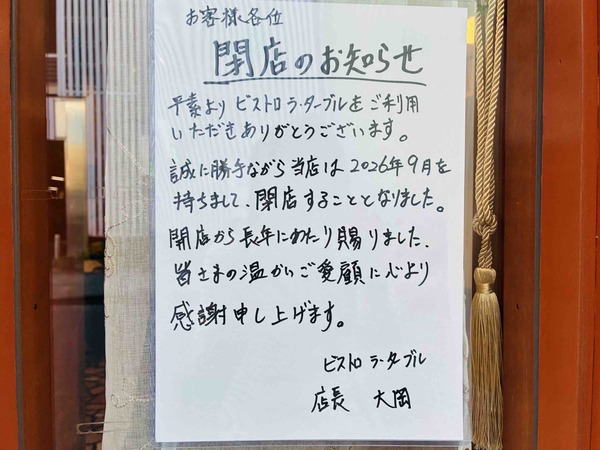 お客様各位
閉店のお知らせ
平素よりビストロラ・ターブルをご利用
いただきありがとうございます。
誠に勝手ながら当店は2026年9月を
持ちまして、閉店することとなりました。
開店から長年にわたり賜りました、
皆さまの温かいご愛顧に心より
感謝申し上げます。
ビストロ ラ・ターブル
店長 大岡